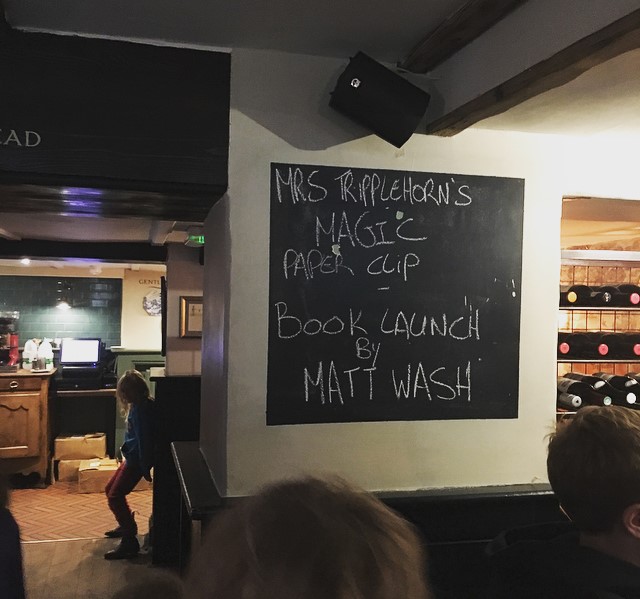 EAD
MRS TRIPPLEHORN'S
MAGIC
PAPER CLIP
BOOK LAUNCH
By
MATT WASH
GENTL